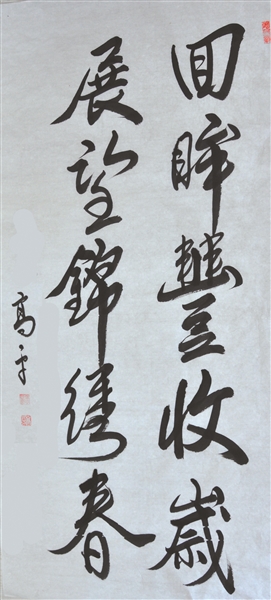 回眸豐收歲
展望錦綉春
高平